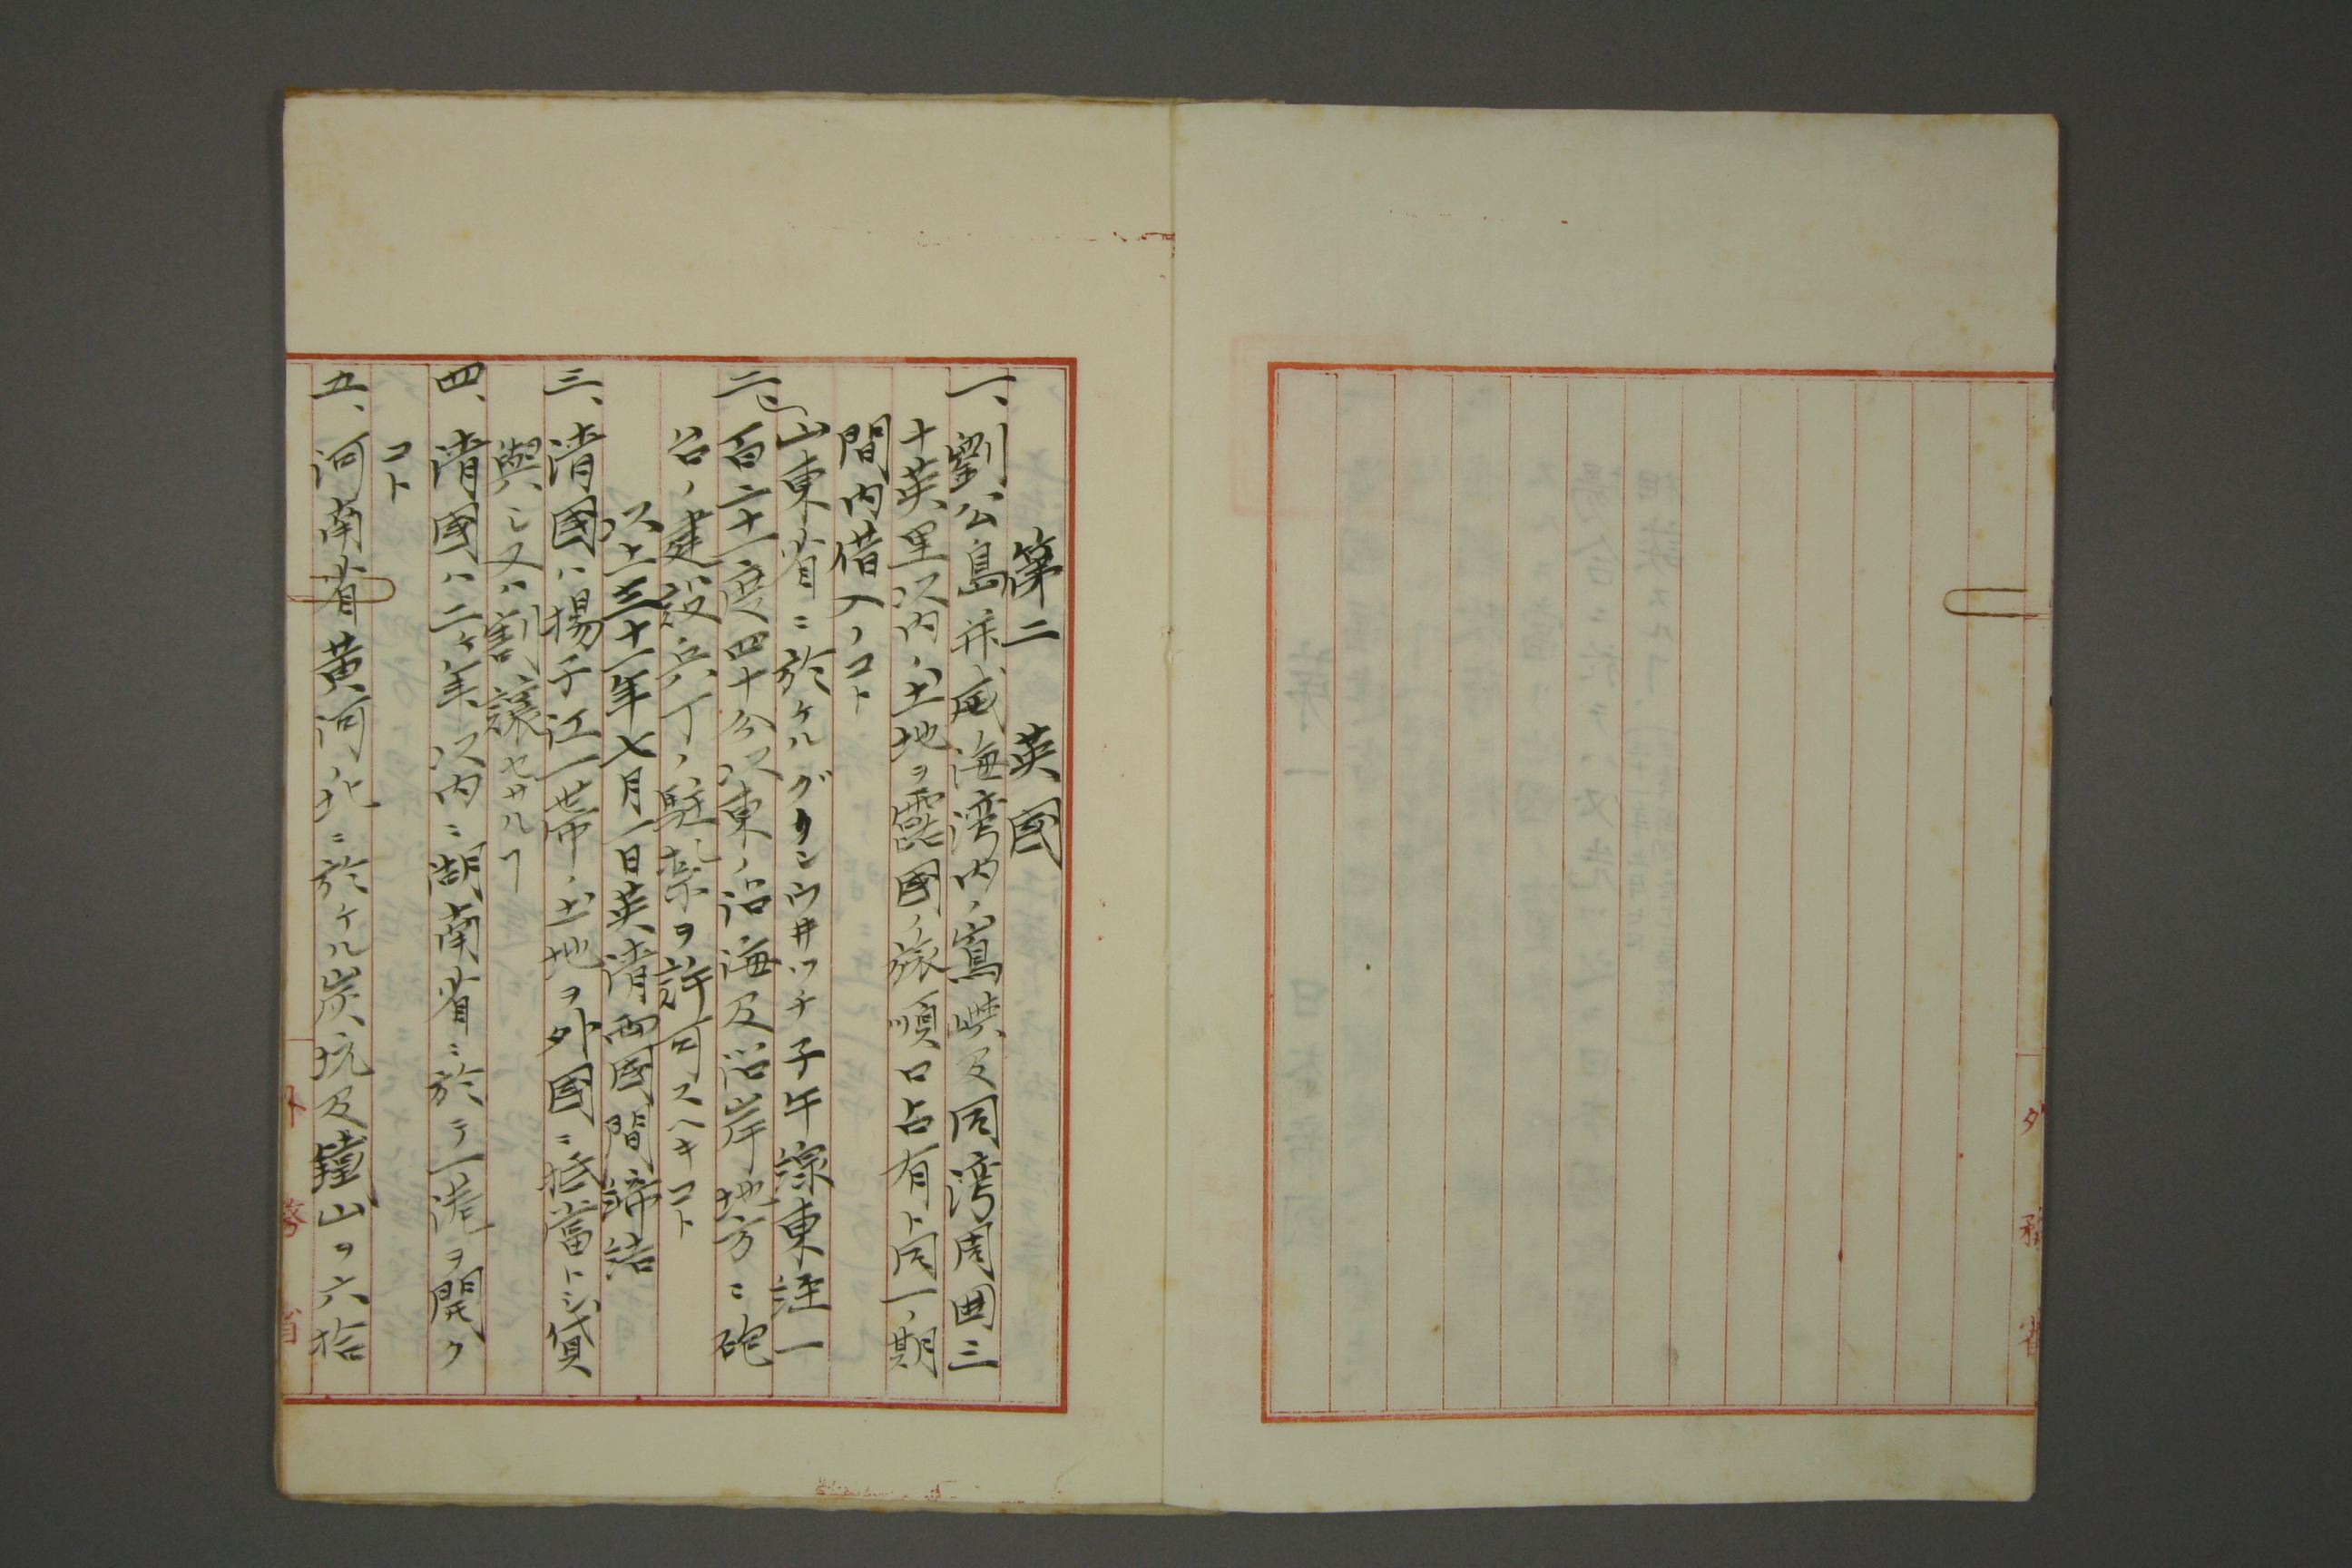 外務省
第二 英國
一、劉公島並威海湾内ノ嶌嶼及同湾周囲三
十英里以内ノ土地ヲ露國ノ旅順口占有ト同一ノ期
間内借入ノコト
二、山東省ニ於ケルグリンウ井ッチ子午線東経一
百二十一度四十分以東ノ沿海及沿岸地方ニ砲
台ノ建設兵丁ノ駐紮ヲ許可スヘキコト
以上三十一年七月一日英清両國間諦結
三、清國ハ揚子江一帯ノ土地ヲ外國ニ抵當トシ貸
與シ又ハ割讓セサルヿ
四、清國ハ二ヶ年以内ニ湖南省ニ於テ一港ヲ開ク
コト
五、河南省黄河ノ北ニ於ケル炭坑及鐵山ヲ六拾
外務省